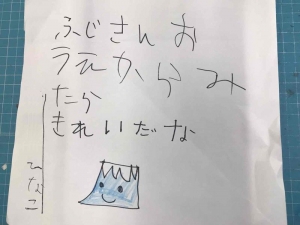 ふじさんお
うえからみ
たら
きれいだな
ひなこ